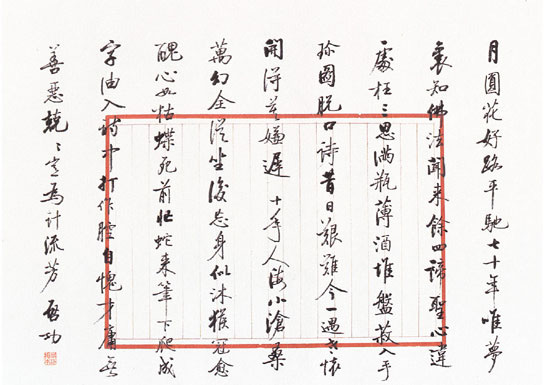 月圓花好路平馳七十年唯夢
裏知佛法聞来餘四諦聖心違
處枉三思满瓶薄酒堆盤菽入手
珍圖脱口詩昔日艱難今一過老懷
開得莫嫌遲 十年人海小滄桑
萬幻全從坐後忘身似沐猴冠愈
醜心如枯蝶死前忙蛇来筆下爬成
字油入詩中打作腔自愧才庸無
善惡兢〻豈爲計流芳 啟功